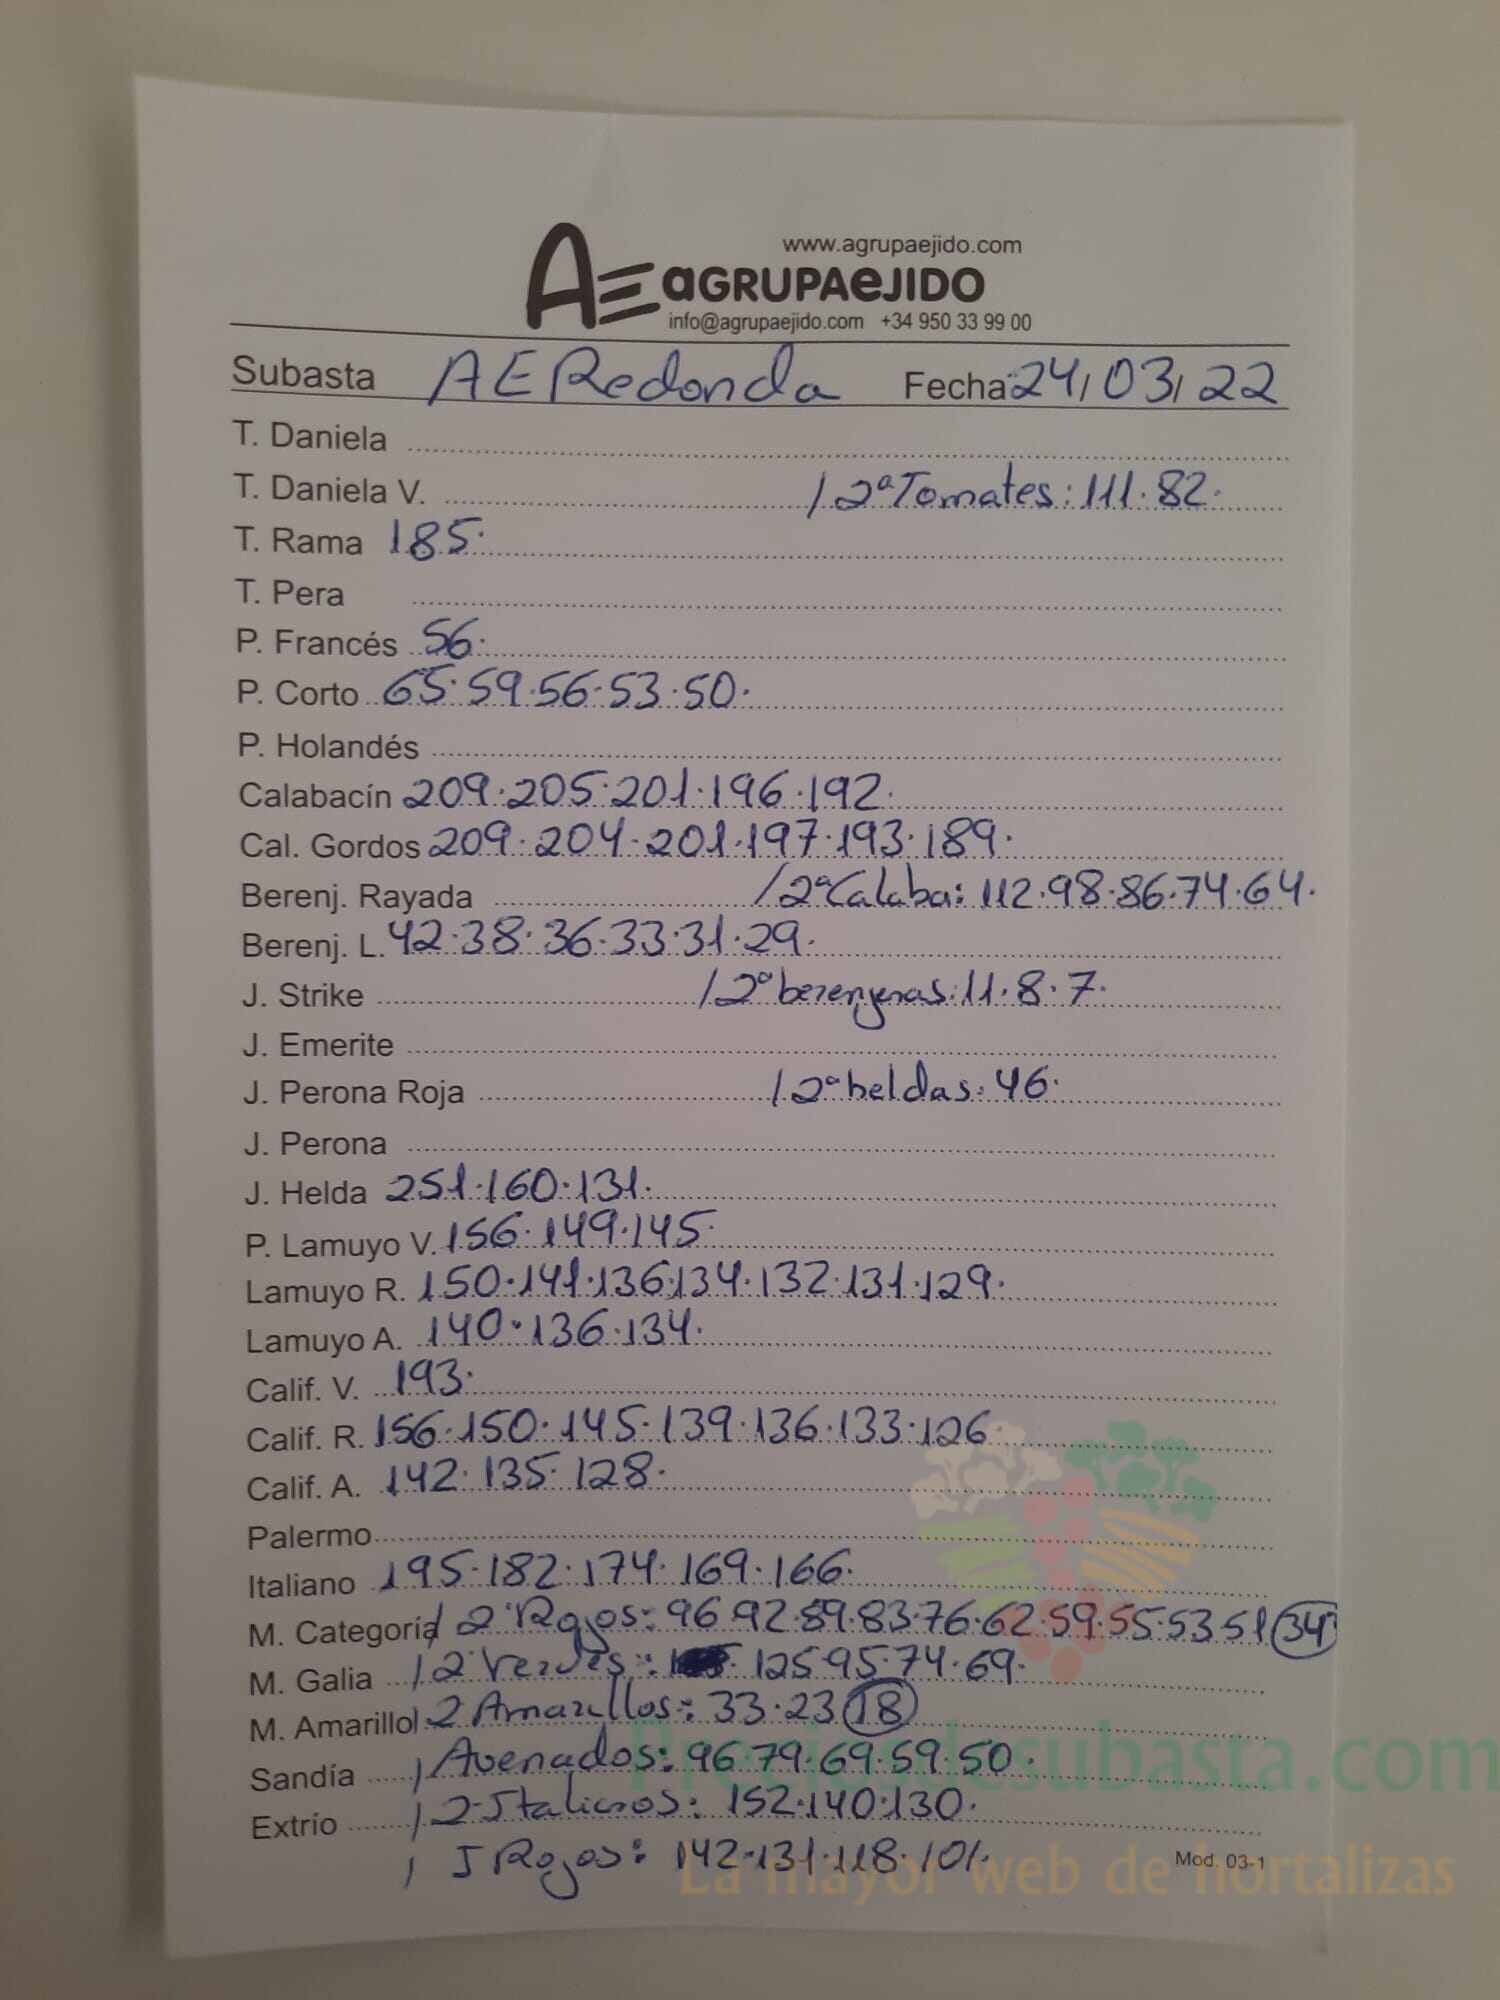 www.agrupaejido.com
AE aGRUPAeJIDO
info@agrupaejido.com +34 950 33 99 00
Subasta AE Redonda Fecha 24/03/22
T. Daniela
T. Daniela V. / 2ª Tomates: 111·82·
T. Rama 185·
T. Pera
P. Francés 56·
P. Corto 65·59·56·53·50·
P. Holandés
Calabacín 209·205·201·196·192·
Cal. Gordos 209·204·201·197·193·189·
Berenj. Rayada / 2ª Calaba: 112·98·86·74·64·
Berenj. L. 42·38·36·33·31·29·
J. Strike / 2ª berenjenas: 11·8·7·
J. Emerite
J. Perona Roja / 2ª heldas: 46·
J. Perona
J. Helda 251·160·131·
P. Lamuyo V. 156·149·145·
Lamuyo R. 150·141·136·134·132·131·129·
Lamuyo A. 140·136·134·
Calif. V. 193·
Calif. R. 156·150·145·139·136·133·126
Calif. A. 142·135·128·
Palermo
Italiano 195·182·174·169·166·
M. Categoría / 2ª Rojos: 96·92·89·83·76·62·59·55·53·51 34
M. Galia / 2 Verdes: 125·95·74·69·
M. Amarillo / 2 Amarillos: 33·23 18
Sandía / Avenados: 96·79·69·59·50·
Extrío / 2 Italianos: 152·140·130·
/ I Rojos: 142·131·118·101·
Mod. 03-1
Preciosdesubasta.com
La mayor web de hortalizas